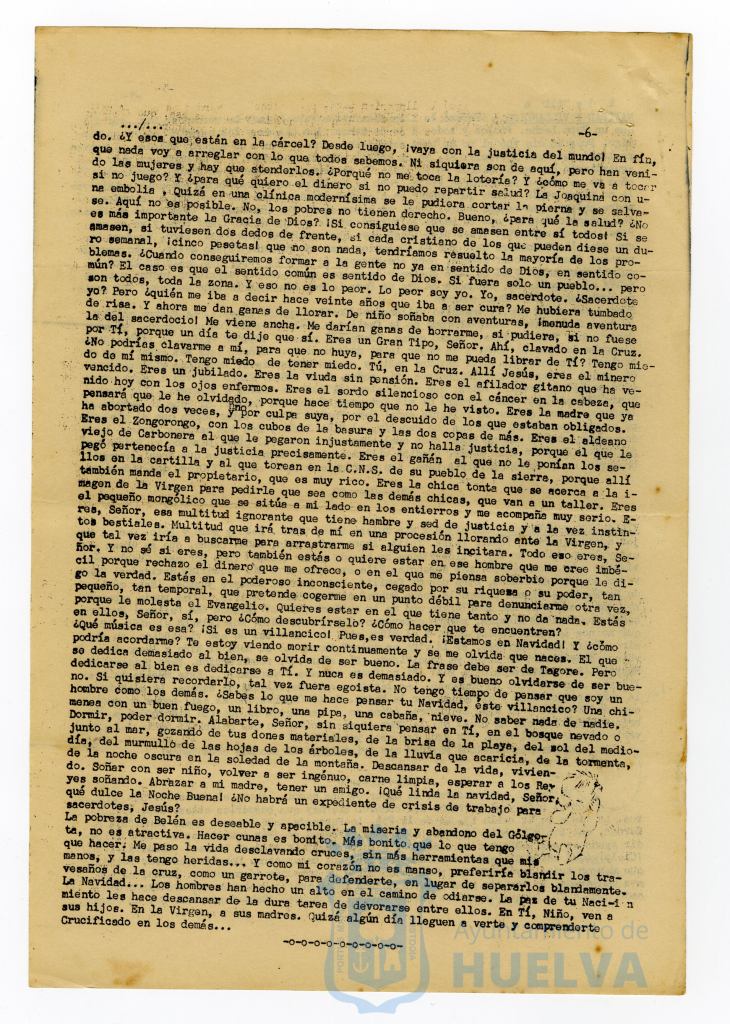 .../...
-6-
do. ¿Y esos que están en la cárcel? Desde luego, ¡vaya con la justicia del mundo! En fín,
que nada voy a arreglar con lo que todos sabemos. Ni siquiera son de aquí, pero han veni-
do las mujeres y hay que atenderlos. ¿Porqué no me toca la lotería? Y ¿cómo me va a tocar
si no juego? Y ¿para qué quiero el dinero si no puedo repartir salud? La Joaquina con u-
na embolia , Quizá en una clínica modernísima se le pudiera cortar la pierna y se salva-
se. Aquí no es posible. No, los pobres no tienen derecho. Bueno, ¿para qué la salud? ¿No
es más importante la Gracia de Dios? ¡Si consiguiese que se amasen entre sí todos! Si se
amasen, si tuviesen dos dedos de frente, si cada cristiano de los que pueden diese un du-
ro semanal, ¡cinco pesetas! que no son nada, tendríamos resuelto la mayoría de los pro-
blemas. ¿Cuando conseguiremos formar a la gente no ya en sentido de Dios, en sentido co-
mún? El caso es que el sentido común es sentido de Dios. Si fuera solo un pueblo... pero
son todos, toda la zona. Y eso no es lo peor. Lo peor soy yo. Yo, sacerdote. ¿Sacerdote
yo? Pero ¿quién me iba a decir hace veinte años que iba a ser cura? Me hubiera tumbado
de risa. Y ahora me dan ganas de llorar. De niño soñaba con aventuras, ¡menuda aventura
la del sacerdocio! Me viene ancha. Me darían ganas de borrarme, si pudiera, si no fuese
por Tí, porque un día te dije que sí. Eres un Gran Tipo, Señor. Ahí, clavado en la Cruz.
¿No podrías clavarme a mí, para que no huya, para que no me pueda librar de Tí? Tengo mie-
do de mí mismo. Tengo miedo de tener miedo. Tú, en la Cruz. Allí Jesús, eres el minero
vencido. Eres un jubilado. Eres la viuda sin pensión. Eres el afilador gitano que ha ve-
nido hoy con los ojos enfermos. Eres el sordo silencioso con el cáncer en la cabeza, que
pensará que le he olvidado, porque hace tiempo que no le he visto. Eres la madre que ya
ha abortado dos veces, y uno por culpa suya, por el descuido de los que estaban obligados.
Eres el Zongorongo, con los cubos de la basura y las dos copas de más. Eres el aldeano
viejo de Carbonera al que le pegaron injustamente y no halla justicia, porque el que le
pegó pertenecía a la justicia precisamente. Eres el gañán al que no le ponían los se-
llos en la cartilla y al que torean en la C.N.S. de su pueblo de la sierra, porque allí
también manda el propietario, que es muy rico. Eres la chica tonta que se acerca a la i-
magen de la Virgen para pedirle que sea como las demás chicas, que van a un taller. Eres
el pequeño mongólico que se sitúa a mi lado en los entierros y me acompaña muy serio. E-
res, Señor, esa multitud ignorante que tiene hambre y sed de justicia y a la vez instin-
tos bestiales. Multitud que irá tras de mí en una procesión llorando ante la Virgen, y
que tal vez iría a buscarme para arrastrarme si alguien les incitara. Todo eso eres, Se-
ñor. Y no sé si eres, pero también estás o quiere estar en ese hombre que me cree imbé-
cil porque rechazo el dinero que me ofrece, o en el que me piensa soberbio porque le di-
go la verdad. Estás en el poderoso inconsciente, cegado por su riquesa o su poder, tan
pequeño, tan temporal, que pretende cogerme en un punto débil para denunciarme otra vez,
porque le molesta el Evangelio. Quieres estar en el que tiene tanto y no da nada. Estás
en ellos, Señor, sí, pero ¿Cómo descubrírselo? ¿Cómo hacer que te encuentren?
¿Qué música es esa? ¡Si es un villancico! Pues, es verdad. ¡Estamos en Navidad! Y ¿cómo
podría acordarme? Te estoy viendo morir continuamente y se me olvida que naces. El que
se dedica demasiado al bien, se olvida de ser bueno. La frase debe ser de Tagore. Pero
dedicarse al bien es dedicarse a Tí. Y nuca es demasiado. Y es bueno olvidarse de ser bue-
no. Si quisiera recordarlo, tal vez fuera egoista. No tengo tiempo de pensar que soy un
hombre como los demás. ¿Sabes lo que me hace pensar tu Navidad, este villancico? Una chi-
menea con un buen fuego, un libro, una pipa, una cabaña, nieve. No saber nada de nadie.
Dormir, poder dormir. Alabarte, Señor, sin siquiera pensar en Tí, en el bosque nevado o
junto al mar, gozando de tus dones materiales, de la brisa de la playa, del sol del medio-
día, del murmullo de las hojas de los árboles, de la lluvia que acaricia, de la tormenta,
de la noche oscura en la soledad de la montaña. Descansar de la vida, vivien-
do. Soñar con ser niño, volver a ser ingénuo, carne limpia, esperar a los Re-
yes soñando. Abrazar a mi madre, tener un amigo. ¡Qué linda la navidad, Señor,
qué dulce la Noche Buena! ¿No habrá un expediente de crisis de trabajo para
sacerdotes, Jesús?
La pobreza de Belén es deseable y apacible. La miseria y abandono del Gólgo-
ta, no es atractiva. Hacer cunas es bonito. Más bonito que lo que tengo
que hacer. Me paso la vida desclavando cruces, sin más herramientas que mis
manos, y las tengo heridas... Y como mi corazón no es manso, preferiría blandir los tra-
vesaños de la cruz, como un garrote, para defenderte, en lugar de separarlos blandamente.
La Navidad... Los hombres han hecho un alto en el camino de odiarse. La paz de tu Naci-
miento les hace descansar de la dura tarea de devorarse entre ellos. En Tí, Niño, ven a
sus hijos. En la Virgen, a sus madres. Quizá algún día lleguen a verte y comprenderte
Crucificado en los demás...
-o-o-o-o-o-o-o-o-o-
Ayuntamiento de
HUELVA